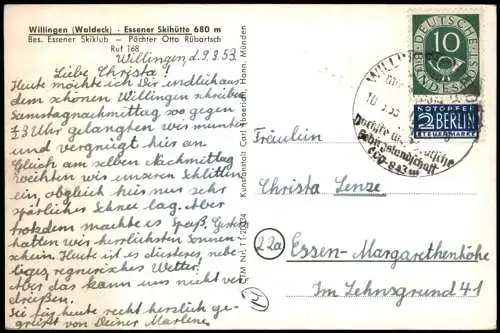 Willingen (Waldeck) - Essener Skihütte 680 m
Bes. Essener Skiklub - Pächter Otto Rübartsch
Ruf 168
Willingen, d. 9.3.53.
Liebe Christa!
Heute möchte ich Dir endlich aus
dem schönen Willingen schreiben.
Samstagnachmittag so gegen
½3 Uhr gelangten wir munter
und vergnügt hier an.
Gleich am selben Nachmittag
weihten wir unseren Schlitten
ein, obgleich hier nur sehr
spärlicher Schnee lag. Aber
trotzdem machte es Spaß. Gestern
hatten wir herrlichsten Sonnen-
schein. Heute ist es düsteres, nebe-
liges, regnerisches Wetter.
Aber das kann uns nicht ver-
drießen.
Sei für heute recht herzlich ge-
grüßt von Deiner Marlene.
Kunstanstalt Carl Thoericht, Hann. Münden
DEUTSCHE
BUNDESPOST
10
NOTOPFER
2 BERLIN
STEUERMARKE
WILLIN
843 m
Fräulein
Christa Lenze
22a
Essen-Margarethenhöhe
Im Lehnsgrund 41